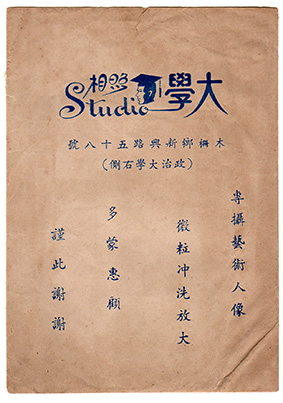 大學照相
Studio
木柵鄉新興路五十八號
(政治大學右側)
專攝藝術人像
微粒冲洗放大
多蒙惠顧
謹此謝謝